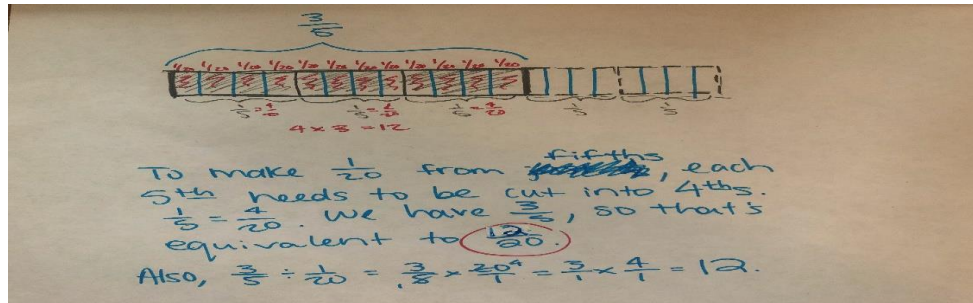 3/5
1/20 1/20 1/20 1/20 1/20 1/20 1/20 1/20 1/20 1/20 1/20 1/20
1/5 = 4/20 1/5 = 4/20 1/5 = 4/20 1/5 1/5
4 x 3 = 12
To make 1/20 from fifths, each
5th needs to be cut into 4ths.
1/5 = 4/20. We have 3/5, so that's
equivalent to 12/20.
Also, 3/5 ÷ 1/20 = 3/5 x 20 4/1 = 3/1 x 4/1 = 12.